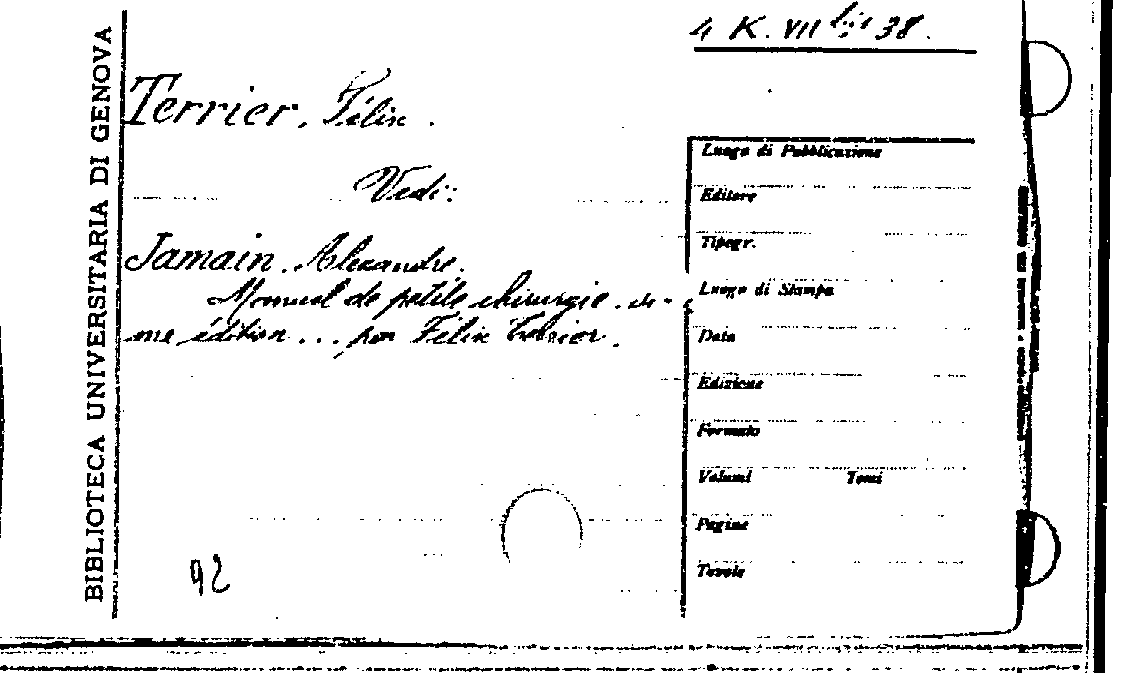 4 K. VII bis 38.
BIBLIOTECA UNIVERSITARIA DI GENOVA
Terrier, Félix.
Vedi:
Jamain, Alexandre.
Manuel de petite chirurgie.
me édition... par Félix Terrier.
92
Luogo di Pubblicazione
Editore
Tipogr.
Luogo di Stampa
Data
Edizione
Formato
Volumi Tomi
Pagine
Tavole